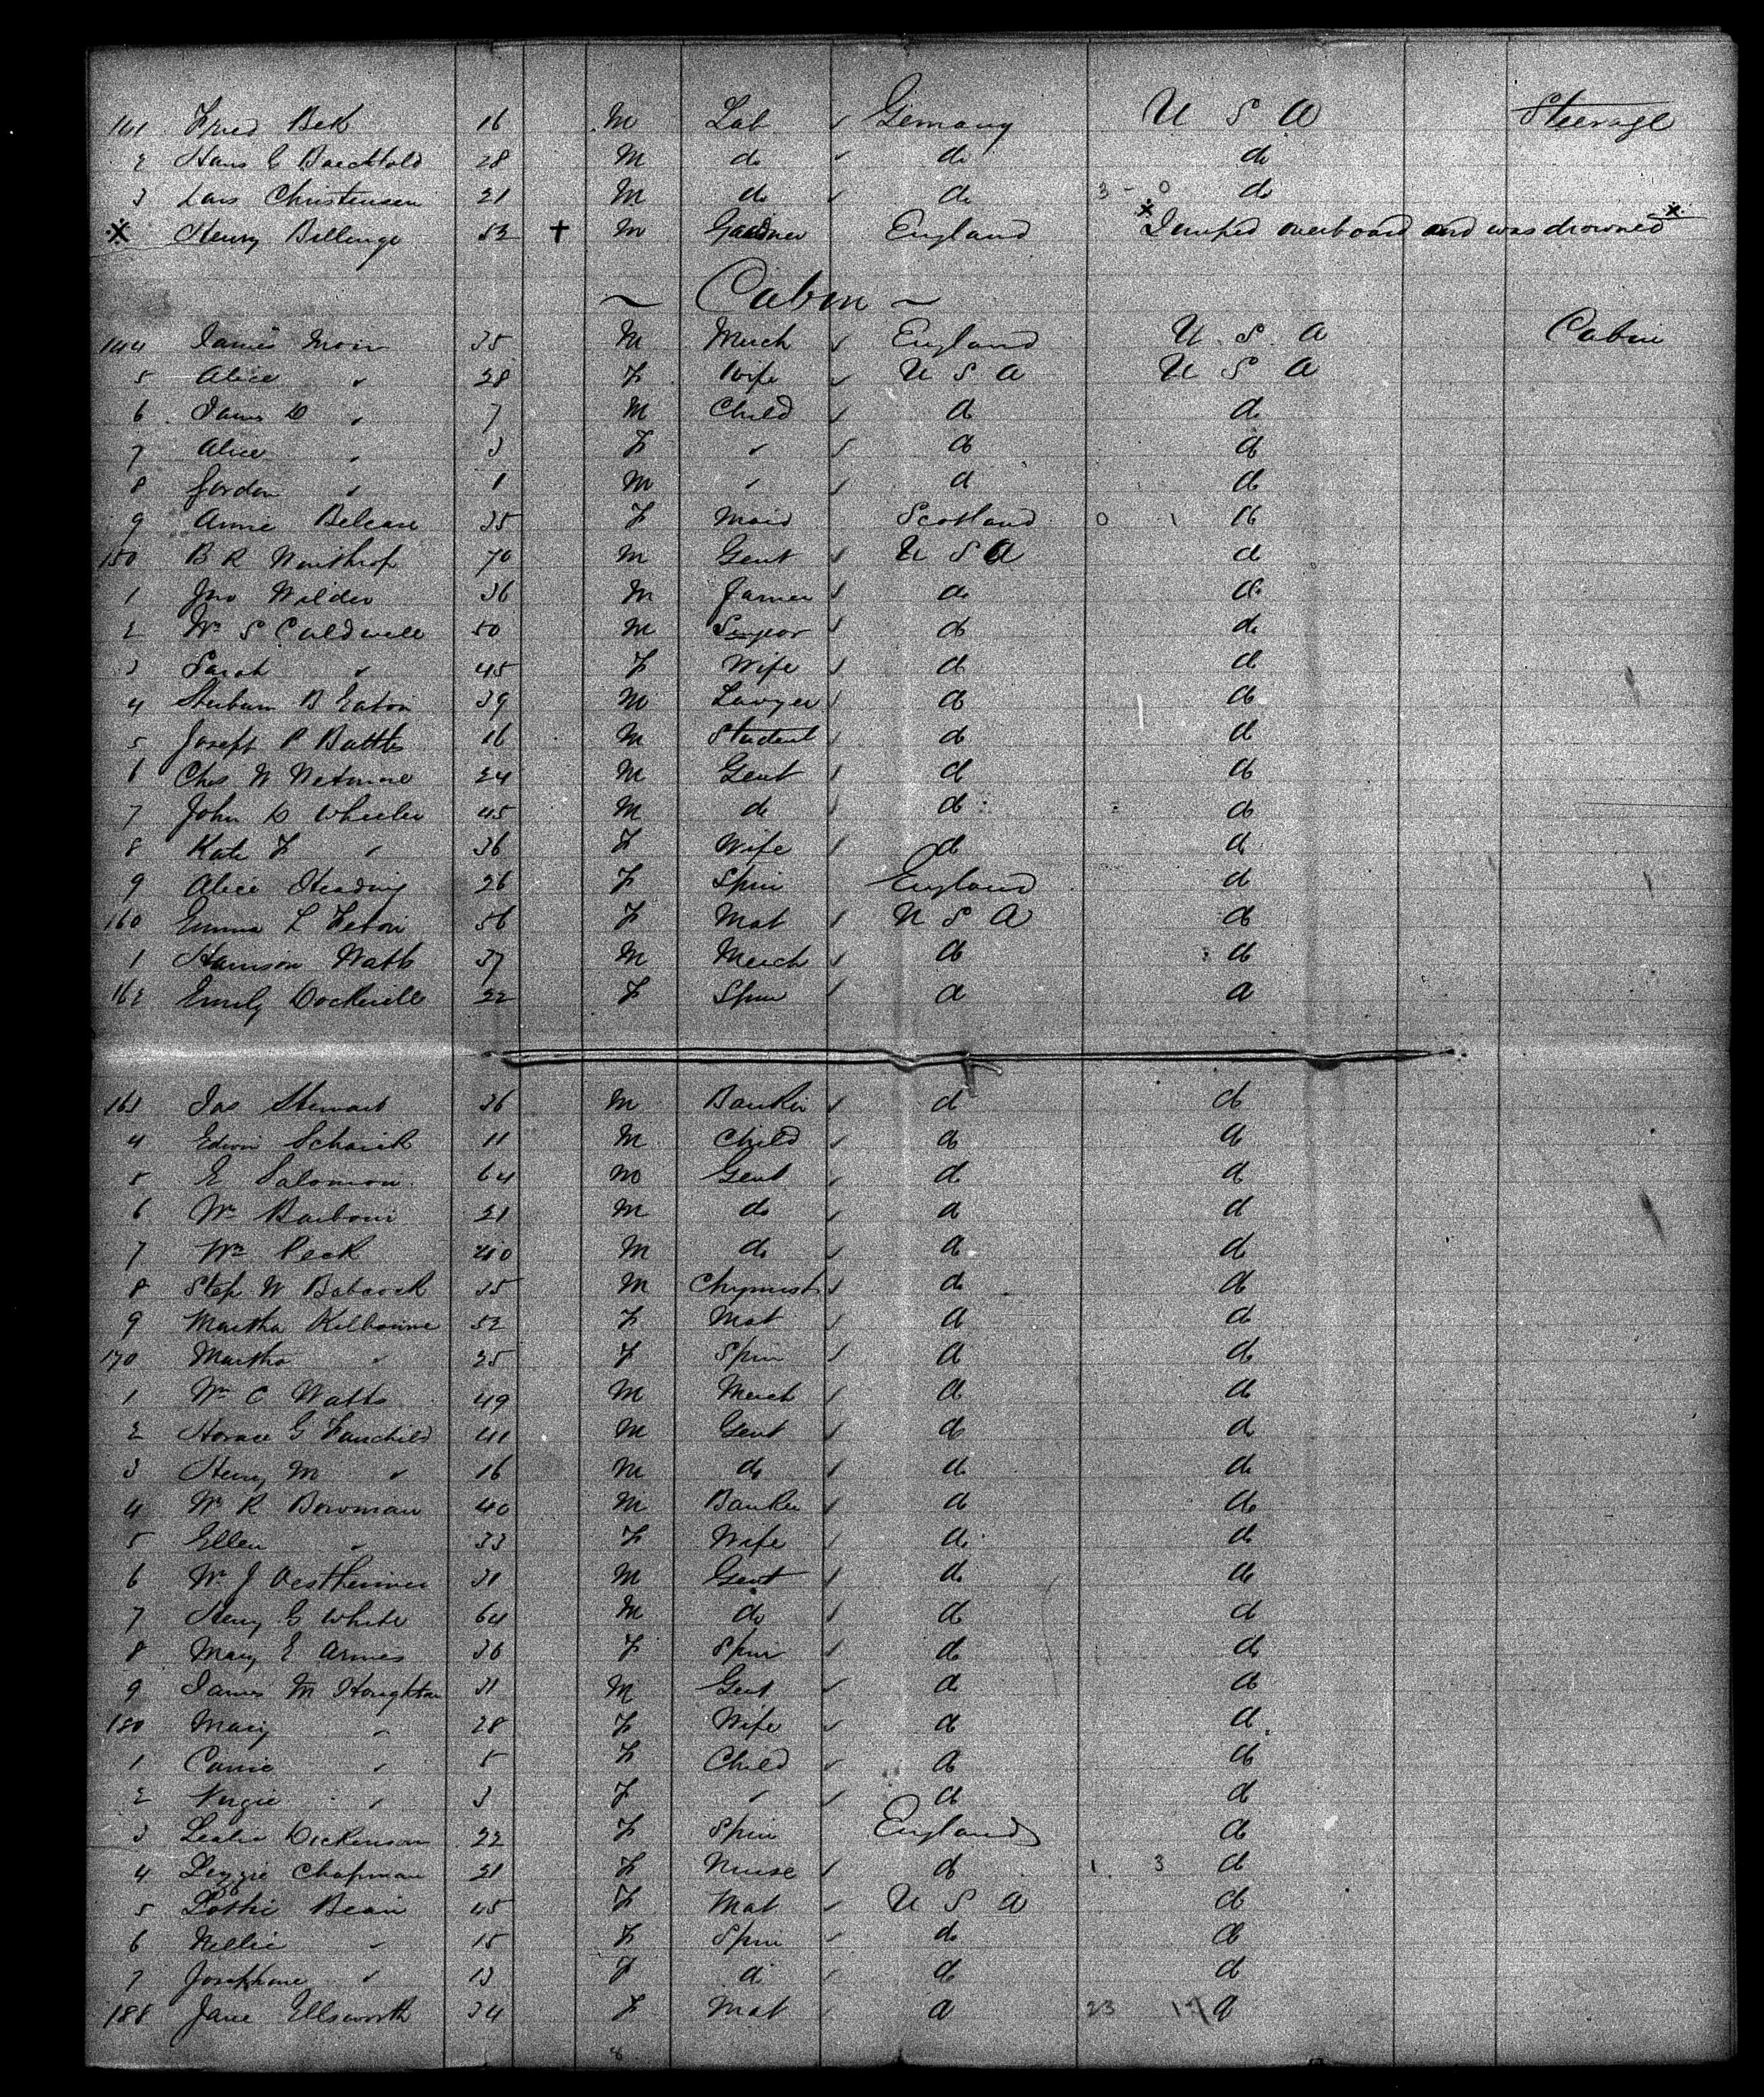 141 Fried Bek 16 M Lab ✓ Germany U S A Steerage
2 Hans C Baechtold 28 M do ✓ do do
3 Lars Christensen 21 M do ✓ do 3 - 0 do
※ Henry Billinge 53 † M Gardner England ※ Jumped overboard and was drowned ※
~ Cabin ~
144 James Moir 35 M Merch ✓ England U. S. A Cabin
5 Alice " 28 F Wife ✓ U S A U S A
6 James D " 7 M Child ✓ do do
7 Alice " 3 F " ✓ do do
8 Gordon " 1 M " ✓ do do
9 Annie 35 F Maid Scotland 0 1 do
150 B R Winthrop 70 M Gent ✓ U S A do
1 Jno Wilder 36 M Farmer ✓ do do
2 Wm S Caldwell 50 M ✓ do do
3 Sarah " 45 F Wife ✓ do do
4 B Eaton 39 M Lawyer ✓ do do
5 Joseph P Battles 16 M Student ✓ do do
6 Chas W Wetmore 24 M Gent ✓ do do
7 John D Wheeler 45 M do ✓ do do
8 Kate F " 36 F Wife ✓ do do
9 Alice 26 F Spin England do
160 Emma L 56 F Mat ✓ U S A do
1 Harrison Watts 37 M Merch ✓ do do
162 Emily 22 F Spin ✓ do do
163 Jas Stewart 36 M Banker ✓ do do
4 Edwin 11 M Child ✓ do do
5 E Salomon 64 M Gent ✓ do do
6 Wm Barbour 21 M do ✓ do do
7 Wm Peck 40 M do ✓ do do
8 Steph W Babcock 35 M Chymist ✓ do do
9 Martha Kilbourne 52 F Mat ✓ do do
170 Martha " 25 F Spin ✓ do do
1 Wm C Watts 49 M Merch ✓ do do
2 Horace G Fairchild 41 M Gent ✓ do do
3 Henry M " 16 M do ✓ do do
4 Wm R Bowman 40 M Banker ✓ do do
5 Ellen " 33 F Wife ✓ do do
6 Wm J Oestheimer 31 M Gent ✓ do do
7 Henry G White 64 M do ✓ do do
8 Mary E Armes 36 F Spin ✓ do do
9 James M Houghton 31 M Gent ✓ do do
180 Mary " 28 F Wife ✓ do do
1 Carrie " 5 F Child ✓ do do
2 " 3 F " ✓ do do
3 Leslie Dickinson 22 F Spin England do
4 Lizzie Chapman 21 F Nurse ✓ do 1 3 do
5 Lottie Bean 45 F Mat ✓ U S A do
6 Nellie " 15 F Spin ✓ do do
7 Josephine " 13 F do ✓ do do
188 Jane Ellsworth 34 F Mat ✓ do 23 do